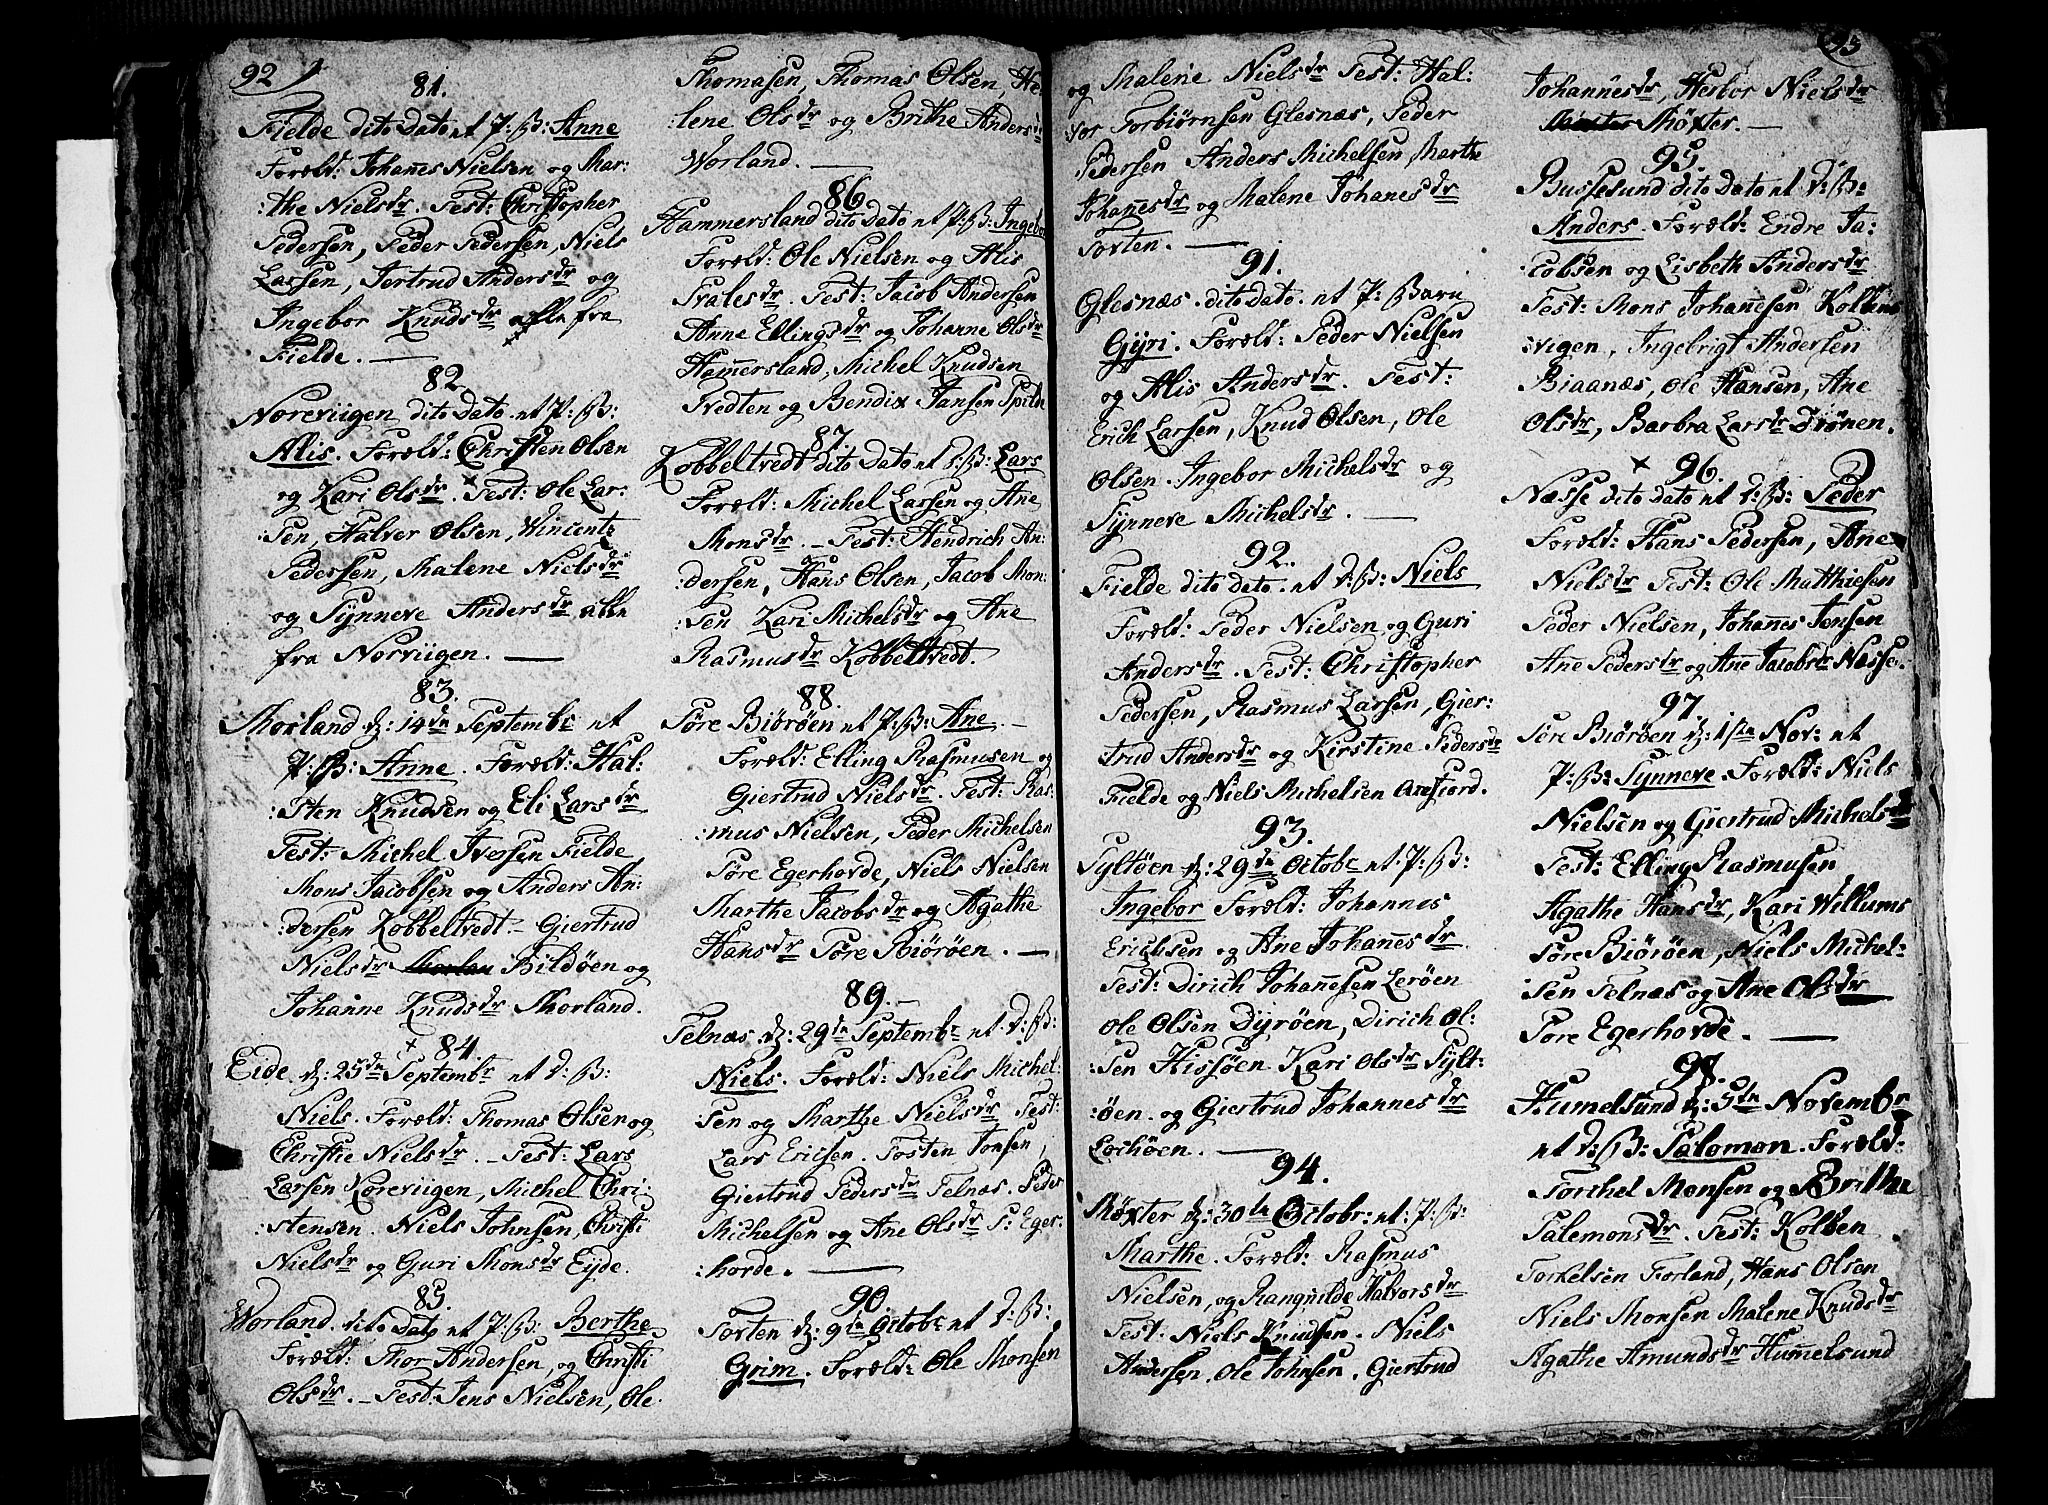 92
81.
Fielde dito Dato et P: B: Anne
Foræld: Johanes Nielsen og Mar:
:the Nielsdr. Test: Christopher
Pedersen, Peder Pedersen, Niels
Larsen, Jertrud Andersdr og
Ingebor Knudsdr alle fra
Fielde. —
82.
Noreviigen dito Dato et P: B:
Alis. Foræld: Christen Olsen
og Kari Olsdr. Test: Ole Lar:
:sen, Halver Olsen, Vincentz
Pedersen, Malene Nielsdr
og Synneve Andersdr alle
fra Norviigen. —
83.
Morland d: 14de Septembr et
P: B: Anne. Foræld: Hal:
:sten Knudsen og Eli Larsdr
Test: Michel Iversen Fielde
Mons Jacobsen og Anders An:
:dersen Kobbeltvedt – Giertrud
Nielsdr Bildøen og
Johanne Knudsdr Morland.
84.
Eide. d: 25de Septembr et D: B:
Niels. Foræld: Thomas Olsen og
Christie Nielsdr. – Test: Lars
Larsen Noreviigen, Michel Chri:
:stensen. Niels Johnsen, Christi
Nielsdr og Guri Monsdr Eijde.
85.
Worland. dito Dato et P: B: Berthe
Foræld: Thor Andersen, og Christi
Olsdr. – Test: Jens Nielsen, Ole
Thomasen, Thomas Olsen, He:
:lene Olsdr og Brithe Andersdr
Worland. —
86.
Hammersland dito Dato et P: B: Ingebor
Foræld: Ole Nielsen og Alis
Fralesdr. Test: Jacob Andersen
Anne Ellingsdr og Johanne Olsdr
Hamersland, Michel Knudsen
Tvedten og Bendix Jansen Spilde
87.
Kobbeltvedt dito Dato et P: B: Lars
Foræld: Michel Larsen og Ane
Monsdr. – Test: Hendrich An:
:dersen, Hans Olsen, Jacob Mon:
:sen Kari Michelsdr og Ane
Rasmusdr Kobbeltvedt.
88.
Søre Biørøen et P: B: Ane. –
Foræld: Elling Rasmusen og
Giertrud Nielsdr. Test: Ras:
:mus Nielsen, Peder Michelsen
Søre Egerhovde, Niels Nielsen
Marthe Jacobsdr og Agathe
Hansdr Søre Biørøen. —
89.
Telnæs d: 29de Septembr et D: B:
Niels. Foræld: Niels Michel:
:sen og Marthe Nielsdr Test:
Lars Ericsen. Tosten Jonsen,
Giertrud Pedersdr Telnæs. Peder
Michelsen og Ane Olsdr S: Eger:
:hovde. —
90
Torten d: 9de Octobr et D: B:
Grim. Foræld: Ole Monsen
93
og Malene Nielsdr Test: Hal:
:vor Torbiørnsen Glesnæs, Peder
Pedersen Anders Michelsen, Marthe
Johannesdr og Malene Johanesdr
Torten. —
91.
Glesnæs. dito dato. et P: Barn
Gyri. Foræld: Peder Nielsen
og Alis Andersdr. Test:
Erich Larsen, Knud Olsen, Ole
Olsen. Ingebor Michelsdr og
Synneve Michelsdr. —
92.
Fielde dito dato. et D: B: Niels
Foræld: Peder Nielsen og Guri
Andersdr. Test: Christopher
Pedersen, Rasmus Larsen, Gier:
:trud Andersdr og Kirstine Pedersdr
Fielde og Niels Michelsen Arefiord.
93.
Syltøen d: 29de Octobr et P: B:
Ingebor Foræld: Johannes
Erichsen og Ane Johannesdr
Test: Dirich Johannesen Lerøen
Ole Olsen Dyrøen, Dirich Ol:
:sen Hissøen Kari Olsdr Sylt:
:øen. og Giertrud Johannesdr
Lochøen. —
94.
Møxter d: 30te Octobr: et: P: B:
Marthe. Foræld: Rasmus
Nielsen, og Rangnilde Halvorsdr
Test: Niels Knudsen. Niels
Andersen, Ole Johnsen. Giertrud
Johannesdr, Herbor Nielsdr
Møxter. —
95.
Bussesund dito Dato et D: B:
Anders. Foræld: Endre Ja:
:cobsen og Lisbeth Andersdr
Test: Mons Johannesen Kolbens
:vigen, Ingebrigt Andersen
Biaanæs, Ole Hansen, Ane
Olsdr, Barbra Larsdr Drønen.
96.
Næsse dito dato et D: B: Peder
Foræld: Hans Pedersen, Ane
Nielsdr Test: Ole Matthiesen
Peder Nielsen, Johannes Jensen
Ane Pedersdr og Ane Jacobsdr Næsse.
97
Søre Biørøen d: 1ste Nov: et
P: B: Synneve. Foræld: Niels
Nielsen og Giertrud Michelsdr
Test: Elling Rasmusen
Agathe Hansdr, Kari Willums
Søre Biørøen, Niels Michel:
:sen Telnæs og Ane Olsdr
Søre Egerhovde. —
98.
Humelsund d: 5te Novembr
et D: B: Salomon. Foræld:
Torchel Monsen og Brithe
Salemonsdr. Test: Kolben
Torkelsen Torland, Hans Olsen
Niels Monsen Malene Knudsdr
Agathe Amundsdr Hummelsund